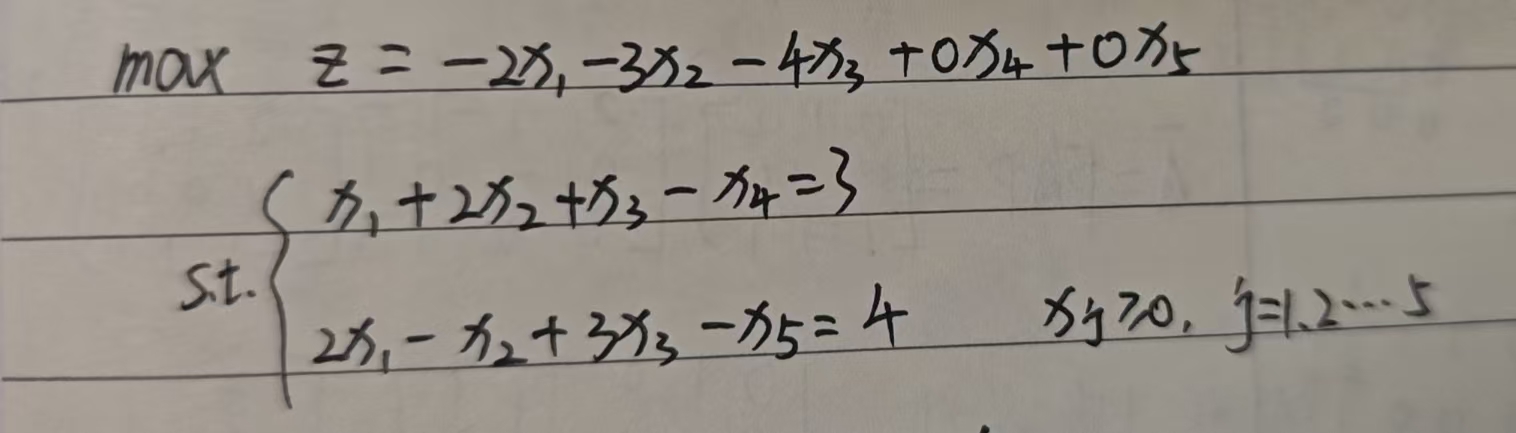 max z = -2x₁ -3x₂ -4x₃ +0x₄ +0x₅
x₁ + 2x₂ + x₃ - x₄ = 3
s.t. {
2x₁ - x₂ + 3x₃ - x₅ = 4 xj ≥0, j=1.2…5